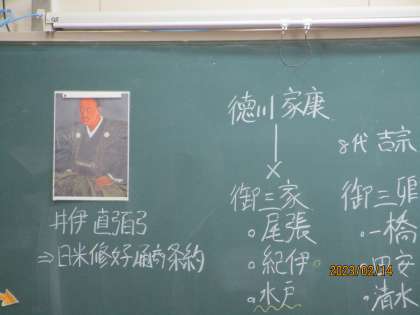 井伊直弼
⇒日米修好通商条約
徳川家康
御三家
。尾張
。紀伊
。水戸
8代 吉宗
御三卿
。一橋
。田安
。清水
2023/02/14